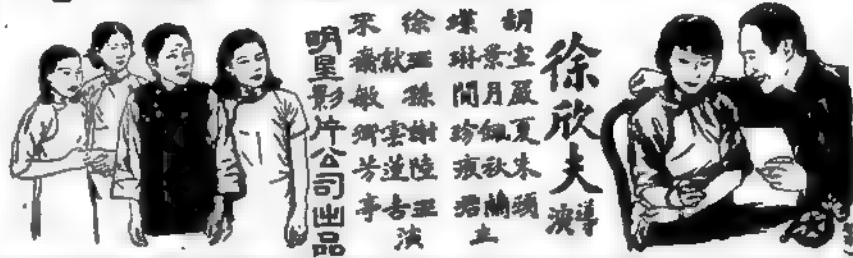 徐欣夫導演
胡蝶 徐來
宣景琳 王獻齋
嚴月閒 孫敏
夏佩珍 謝雲卿
朱秋痕 陸蓮芳
顧蘭君 王吉亭
主演
明星影片公司出品